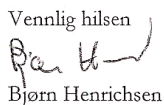 Vennlig hilsen
Bjørn H
Bjørn Henrichsen